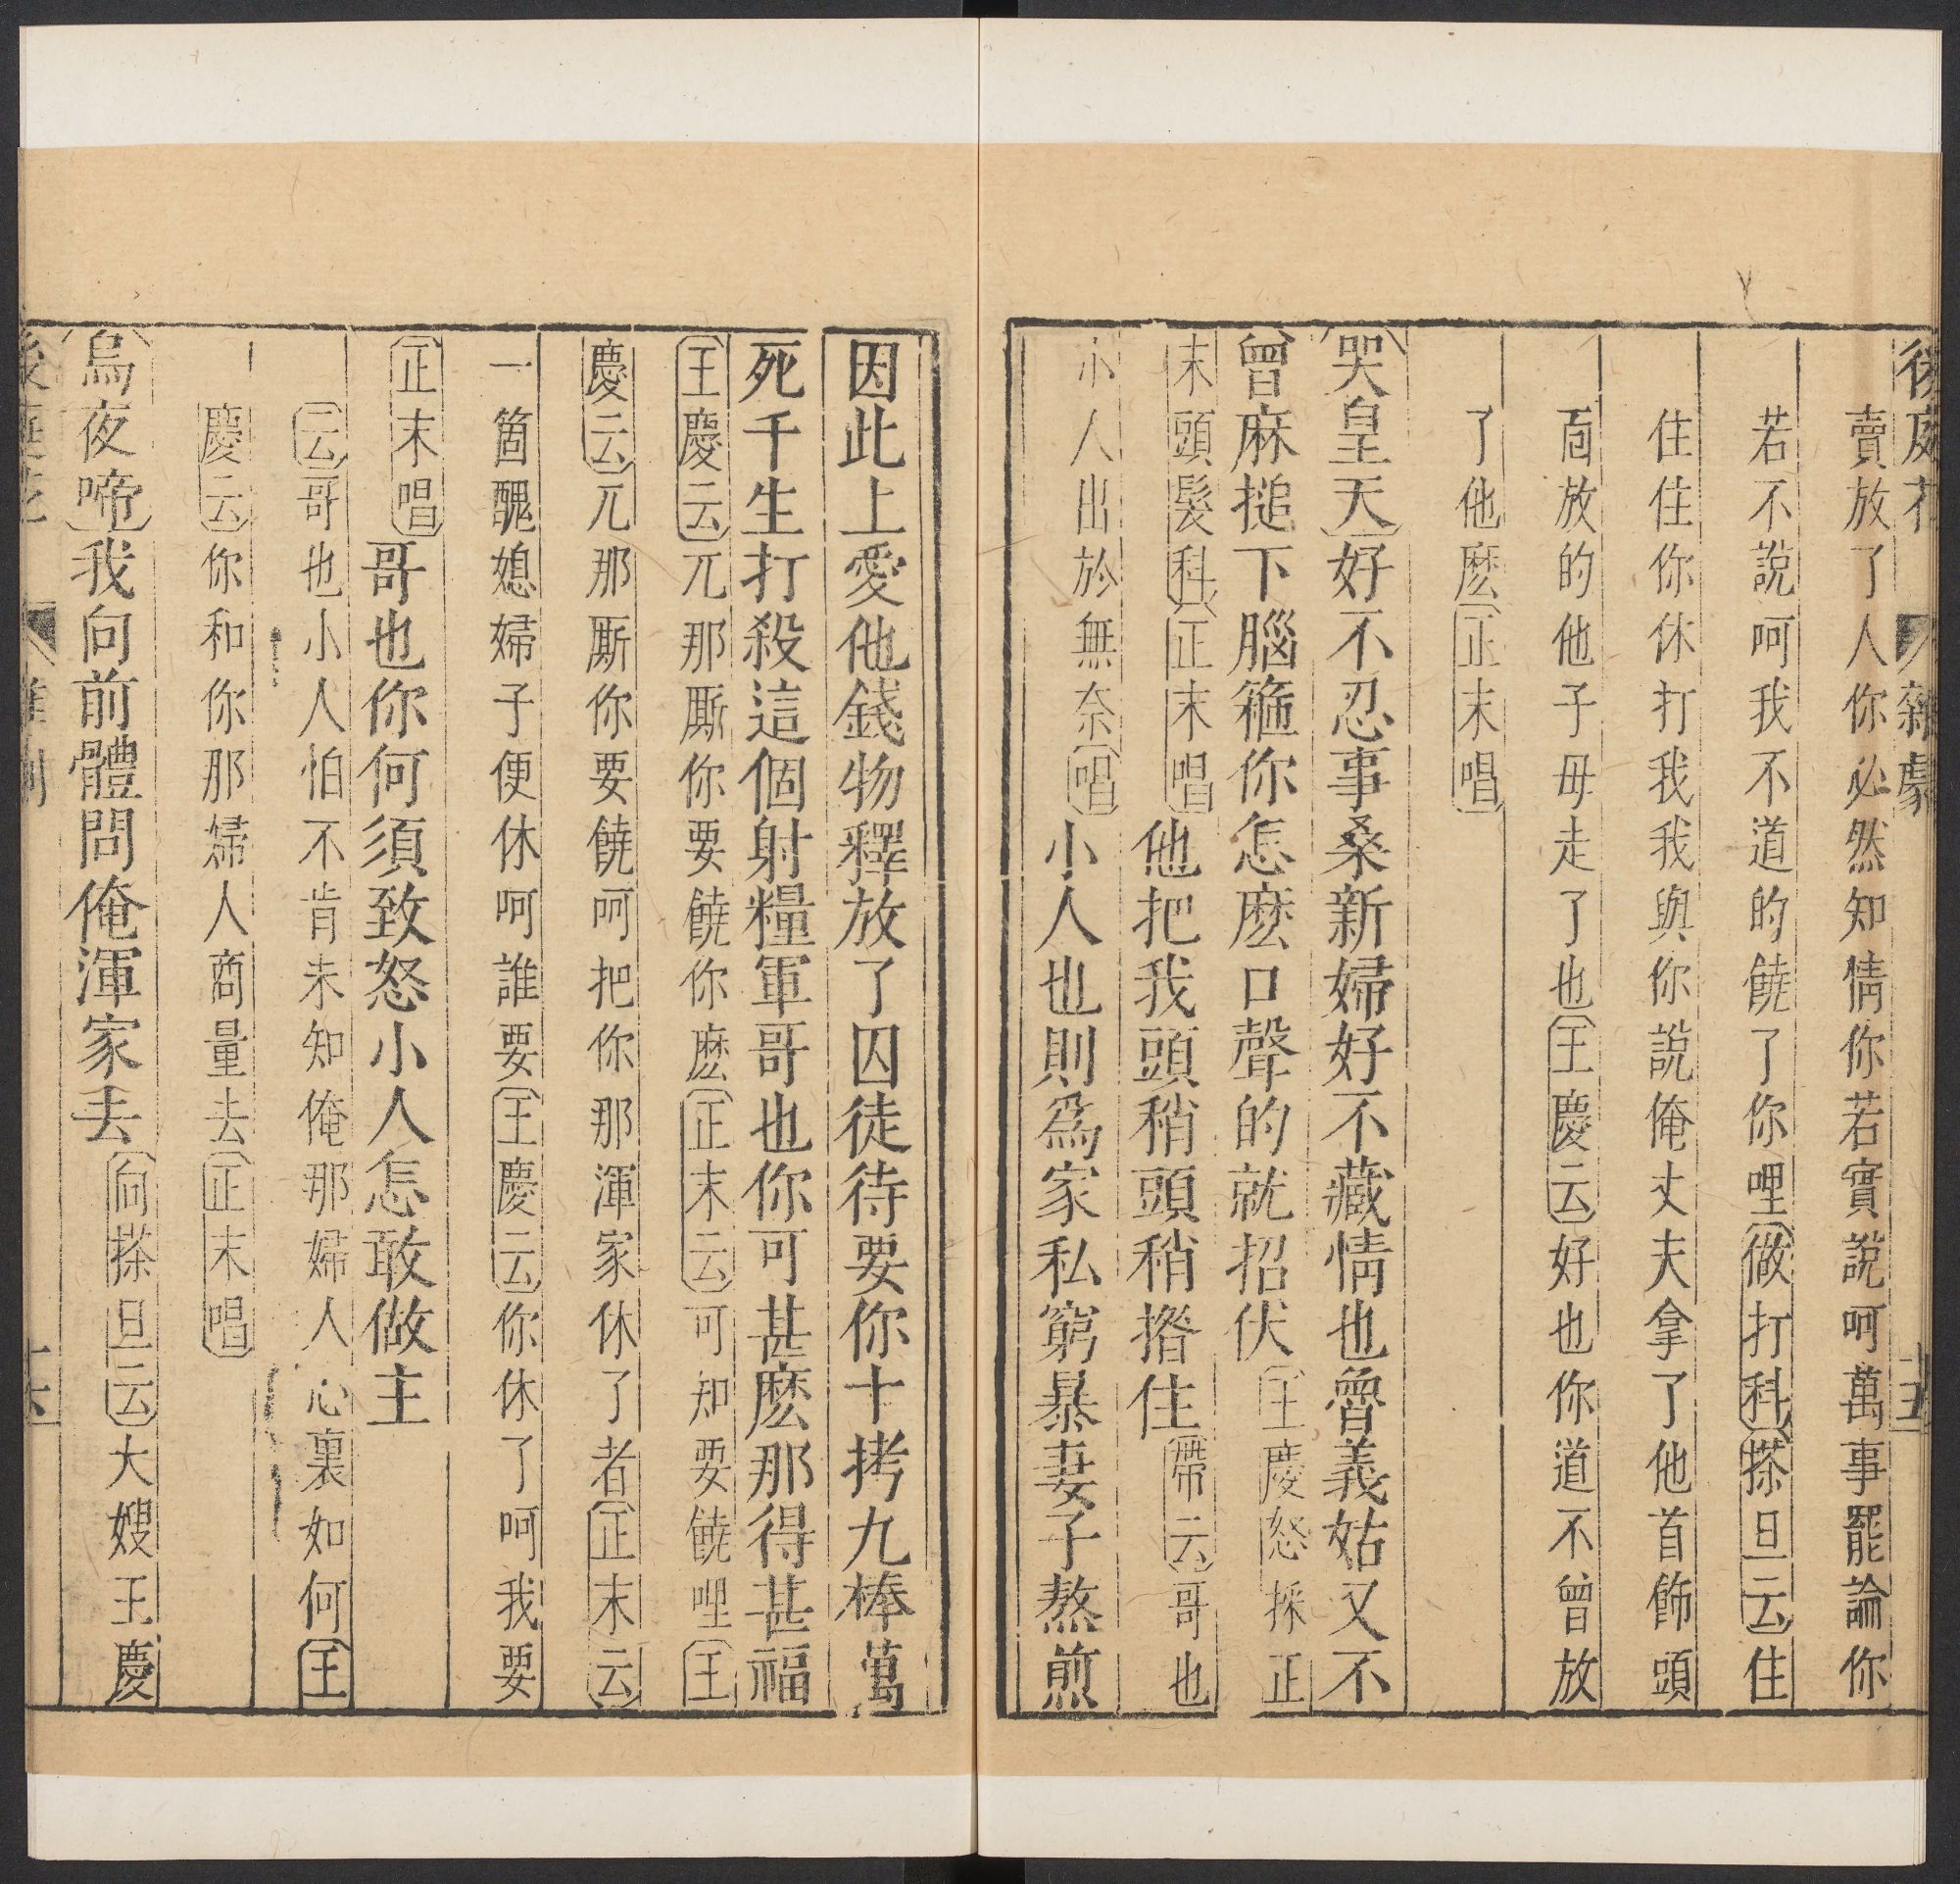 後庭花 雜劇 十五
賣放了人你必然知情你若實說呵萬事罷論你
若不說呵我不道的饒了你哩做打科搽旦云住
住住你休打我我與你說俺丈夫拿了他首飾頭
面放的他子母走了也王慶云好也你道不曾放
了他麽正末唱
哭皇天好不忍事桑新婦好不藏情也魯義姑又不
曾麻搥下腦箍你怎麽口聲的就招伏王慶怒採正
末頭髮科正末唱他把我頭稍頭稍揝住帶云哥也
小人出於無奈唱小人也則爲家私窮暴妻子熬煎
因此上愛他錢物釋放了囚徒待要你十拷九棒萬
死千生打殺這個射糧軍哥也你可甚麽那得甚福
王慶云兀那厮你要饒你麽正末云可知要饒哩王
慶云兀那厮你要饒呵把你那渾家休了者正末云
一箇醜媳婦子便休呵誰要王慶云你休了呵我要
正末唱哥也你何須致怒小人怎敢做主
云哥也小人怕不肯未知俺那婦人心裏如何王
慶云你和你那婦人商量去正末唱
烏夜啼我向前體問俺渾家去向搽旦云大嫂王慶